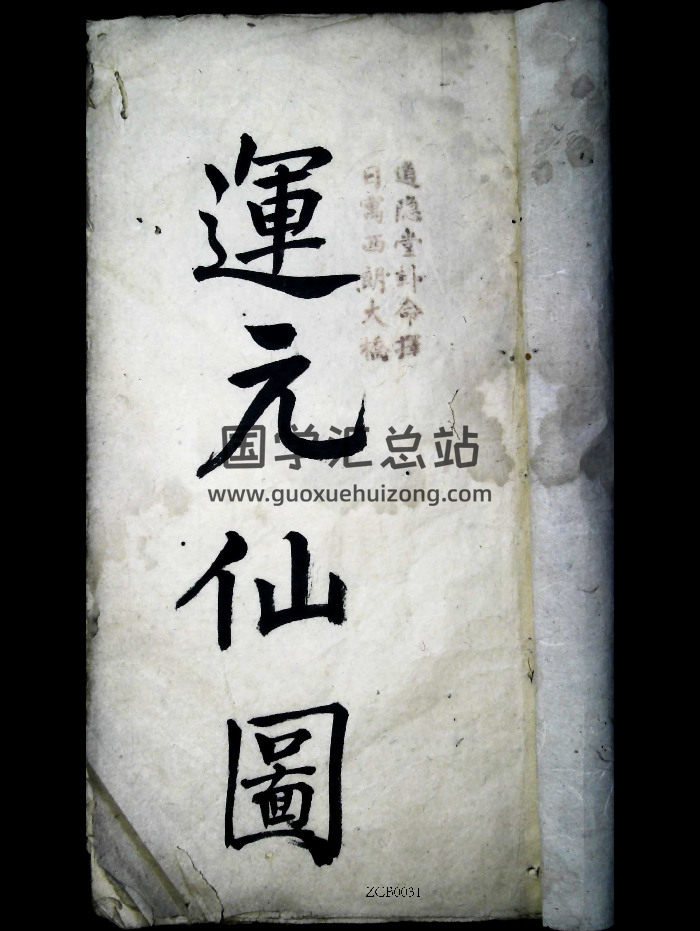 道隐堂卦命擇
日寓西朗大橋
運元仙圖
国学汇总站
www.guoxuehuizong.com
ZGB0031